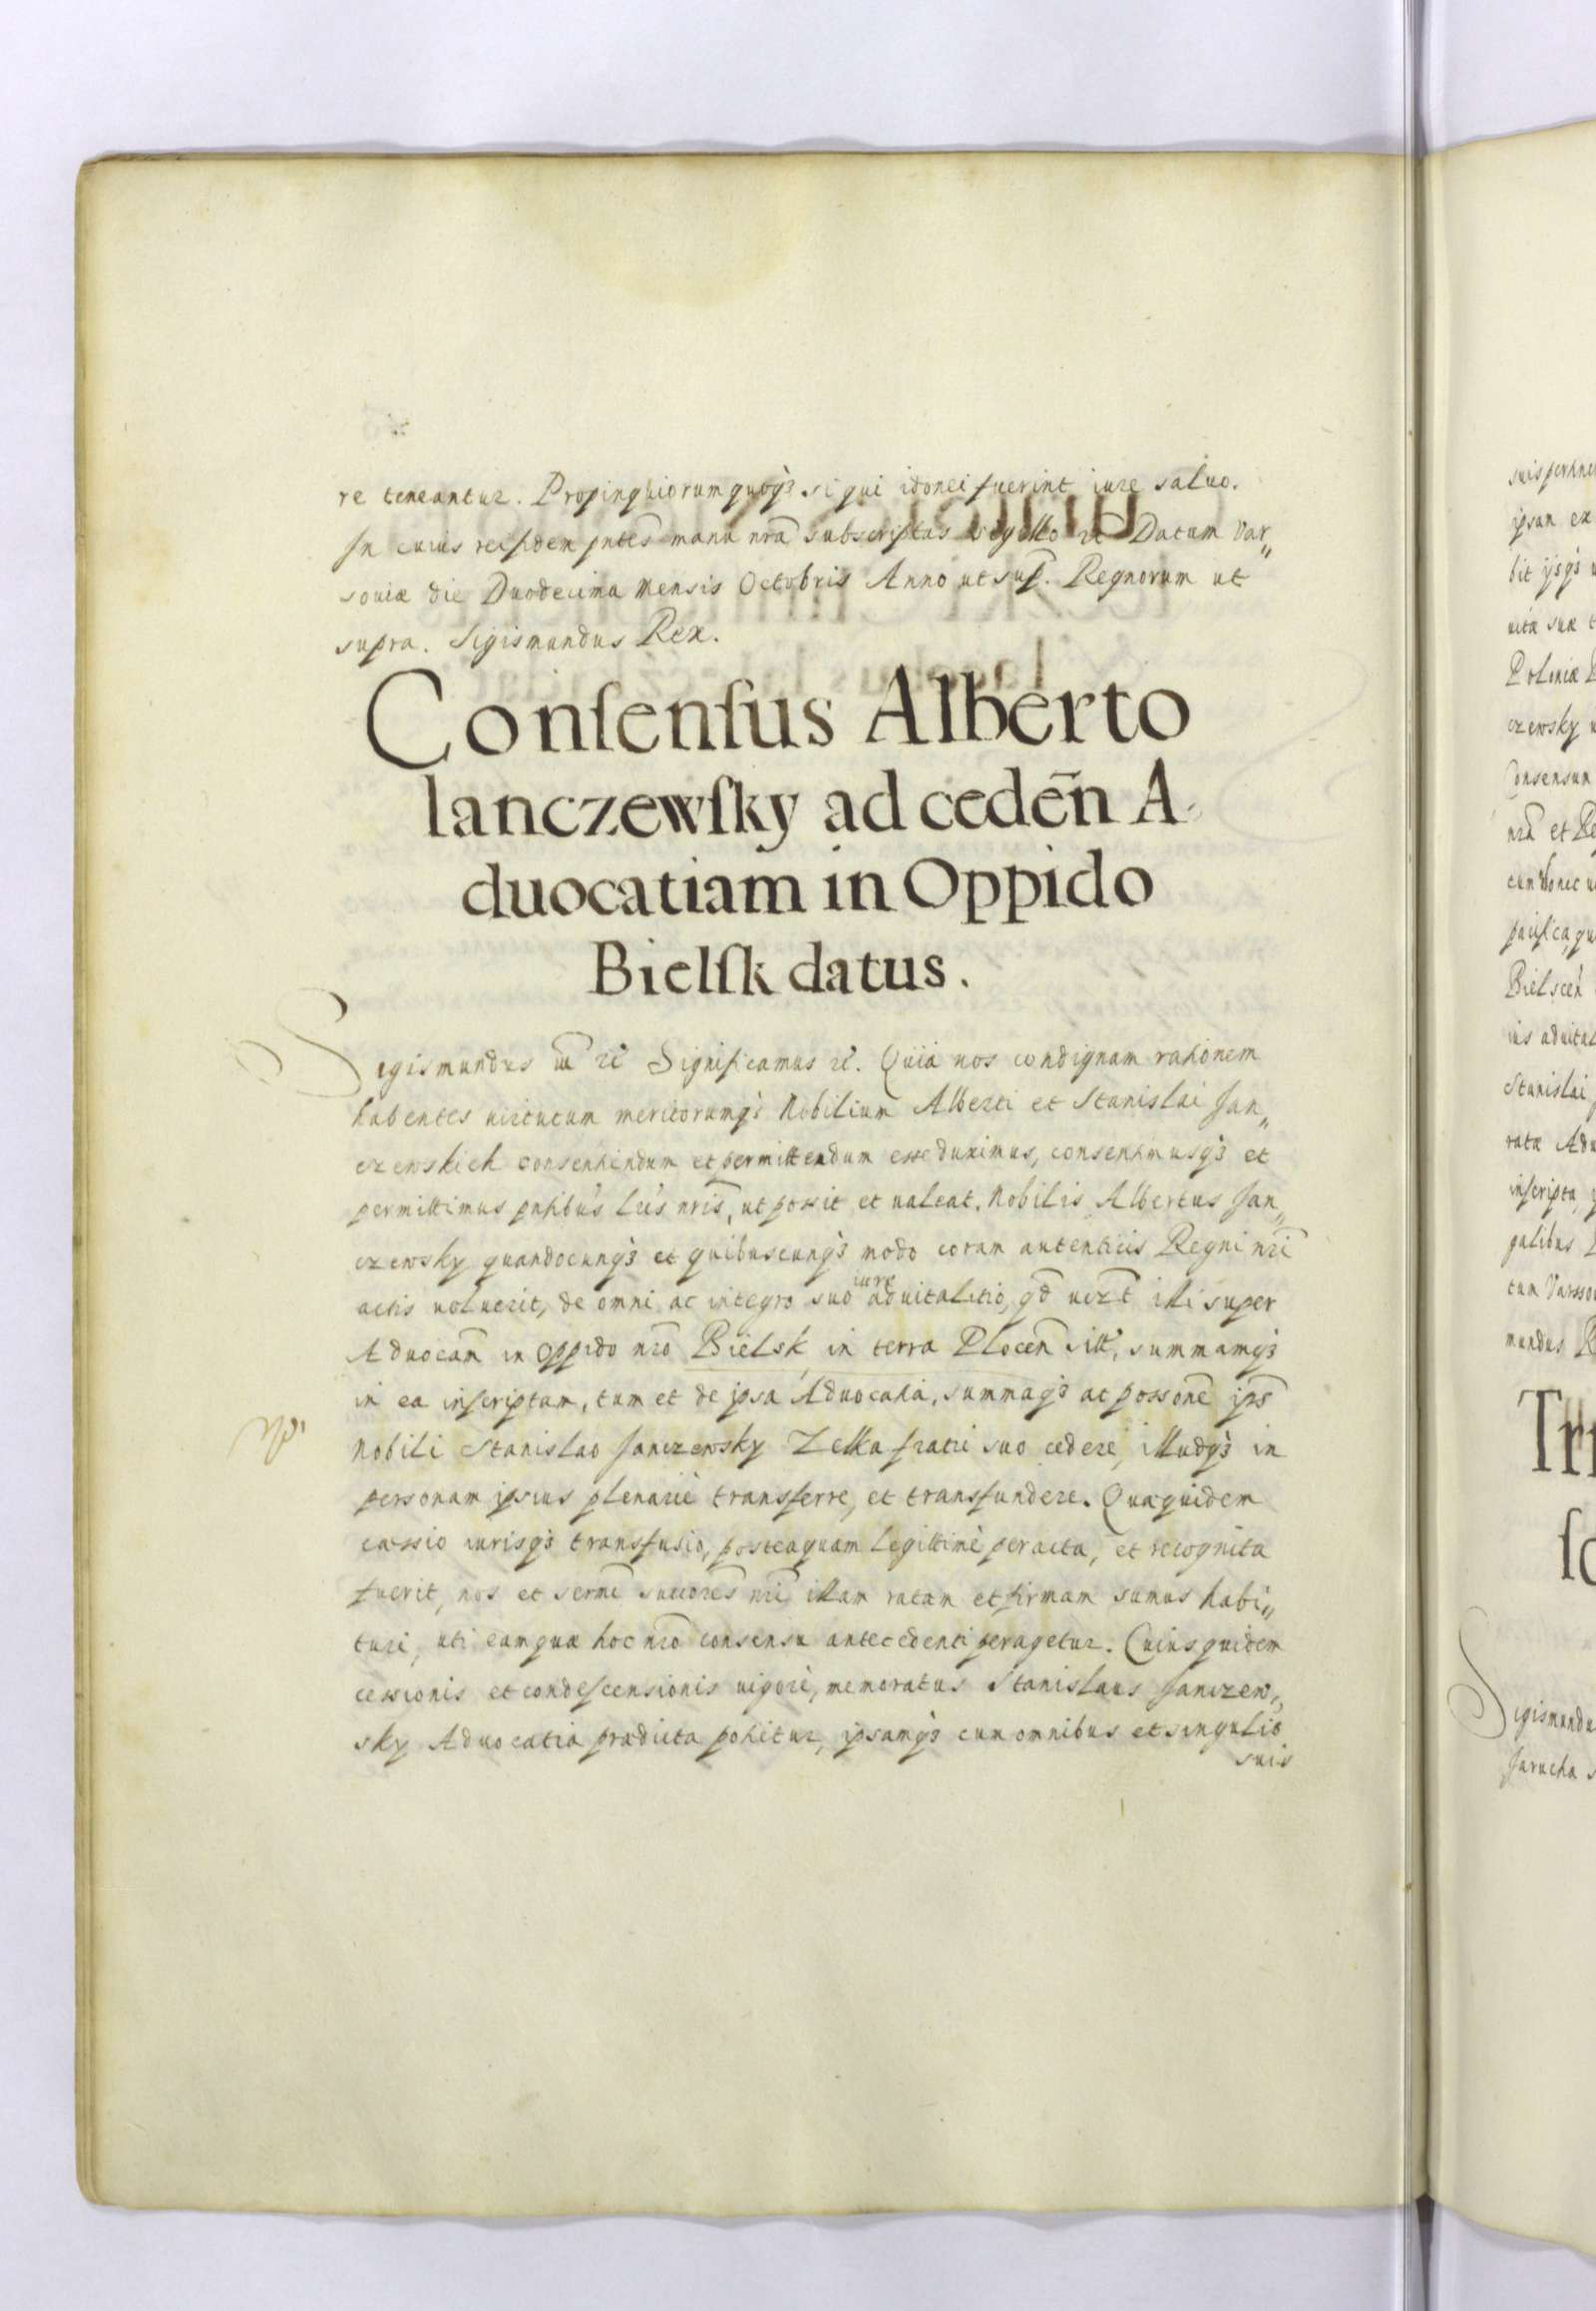 re teneantur. Propinquiorum quoq3 si qui idonei fuerint iure saluo.
In cuius rei fidem pntes manu nra subscriptas sigillo rc Datum Var„
souiæ die Duodecima Mensis Octobris Anno ut sup. Regnorum ut
supra. Sigismundus Rex.
Conſenſus Alberto
Ianczewſky ad ceden̄ A„
duocatiam in Oppido
Bielſk datus.
Sigismundus rc Significamus rc. Quia nos condignam rationem
habentes uirtutum meritorumq3 Nobilium Alberti et Stanislai Jan„
czewskich consentiendum et permittendum esse duximus, consentimusq3 et
permittimus pntibus lris nris, ut possit et ualeat. Nobilis Albertus Jan„
czewsky quandocunq3 et quibuscunq3 modo coram autenticis Regni nri
actis uoluerit, de omni ac integro suo iure aduitalitio, qd uizt illi super
Aduocam in Oppido nro Bielsk in terra Plocen sitt, summamq3
in ea inscriptam, tum et de ipsa Aduocatia, summaq3 ac possone ips
Nobili Stanislao Janczewsky Zelka fratri suo cedere, illudq3 in
personam ipsius plenarie transferre, et transfundere. Quaquidem
cessio iurisq3 transfusio, posteaquam legittimè peracta, et recognita
fuerit, nos et sermi succores nri illam ratam et firmam sumus habi„
turi, uti eam quæ hoc nro consensu antecedenti peragetur. Cuiusquidem
cessionis et condescensionis uigore, memoratus Stanislaus Janczew„
sky Aduocatia prædicta potietur, ipsamq3 cum omnibus et singulis
suis